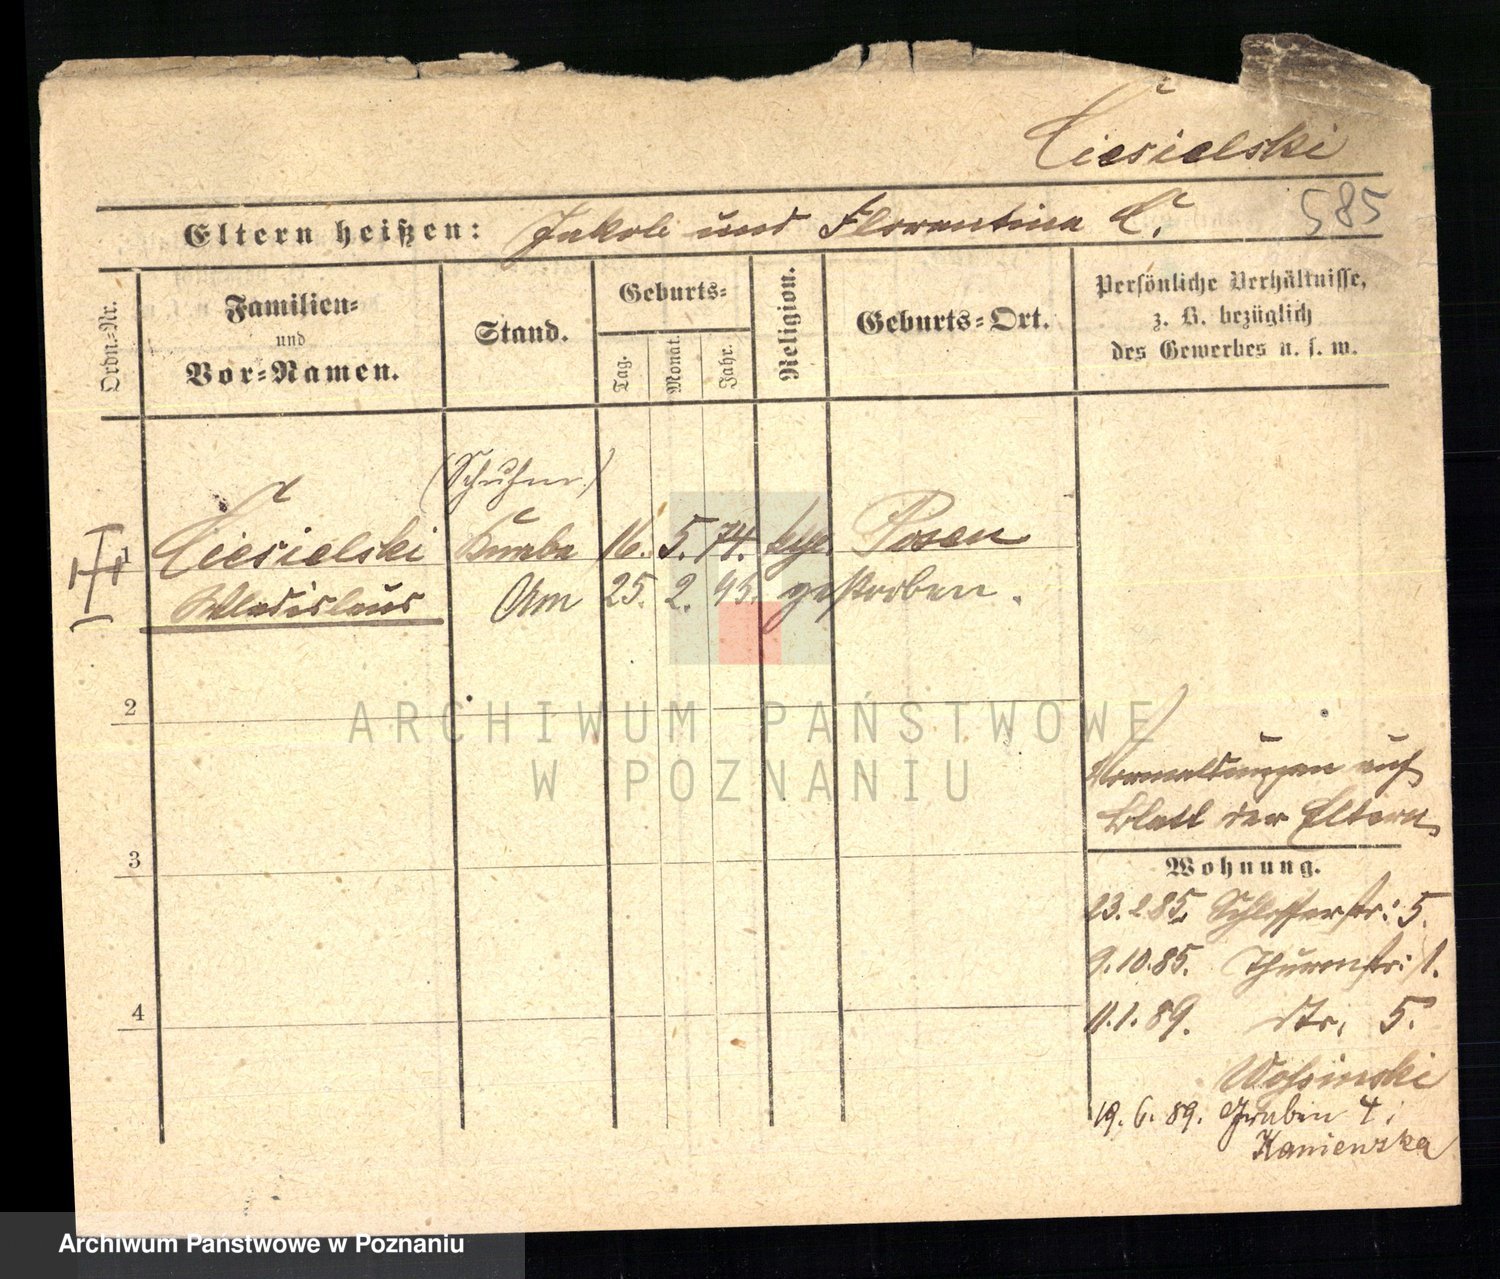 Ciesielski
585
Eltern heißen: Jakob und Florentina C.
Ordn.-Nr.
Familien-
und
Vor-Namen.
Stand.
Geburts-
Tag.
Monat.
Jahr.
Religion.
Geburts-Ort.
Persönliche Verhältnisse,
z. B. bezüglich
des Gewerbes u. s. w.
(Schuhm.)
1 Ciesielski Knabe 16. 5. 74. Posen
Wladislaus Am 25. 2. 95. gestorben.
2
auf
Blatt der Eltern
3
Wohnung.
23.2.85. Schlosserstr: 5.
9.10.85. Thurmstr: 1.
4
11.1.89. dto. 5.
19.6.89. Graben 4;
ARCHIWUM PAŃSTWOWE
W POZNANIU
Archiwum Państwowe w Poznaniu